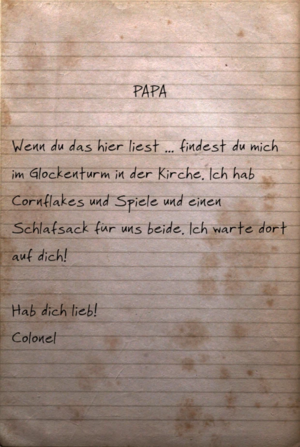 PAPA
Wenn du das hier liest ... findest du mich
im Glockenturm in der Kirche. Ich hab
Cornflakes und Spiele und einen
Schlafsack fur uns beide. Ich warte dort
auf dich!
Hab dich lieb!
Colonel